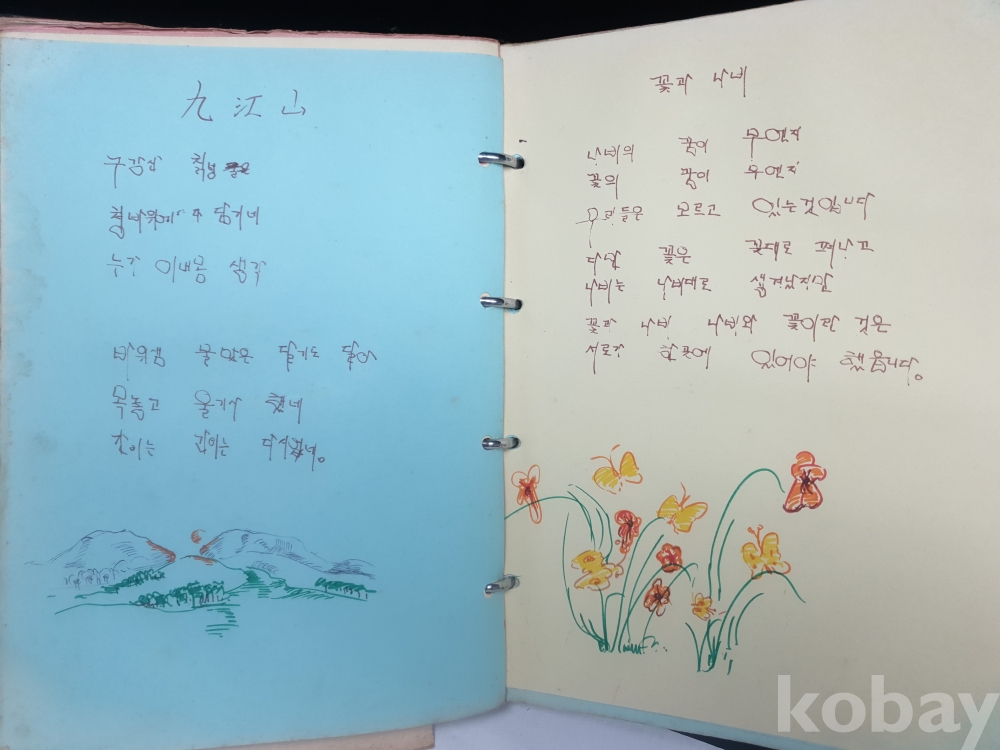 九江山
구강산
누가 이내몸 생각
바위샘 물맑은 달기도 달아
목놓고 울기사 했네
꽃과 나비
나비의 꿈이 무엔지
꽃의 꿈이 무엔지
우리들은 모르고 있는것입니다
다만 꽃은 꽃대로 피나고
나비는 나비대로 생겨났지만
꽃과 나비 나비와 꽃이란 것은
서로가 한곳에 있어야 했읍니다。
kobay